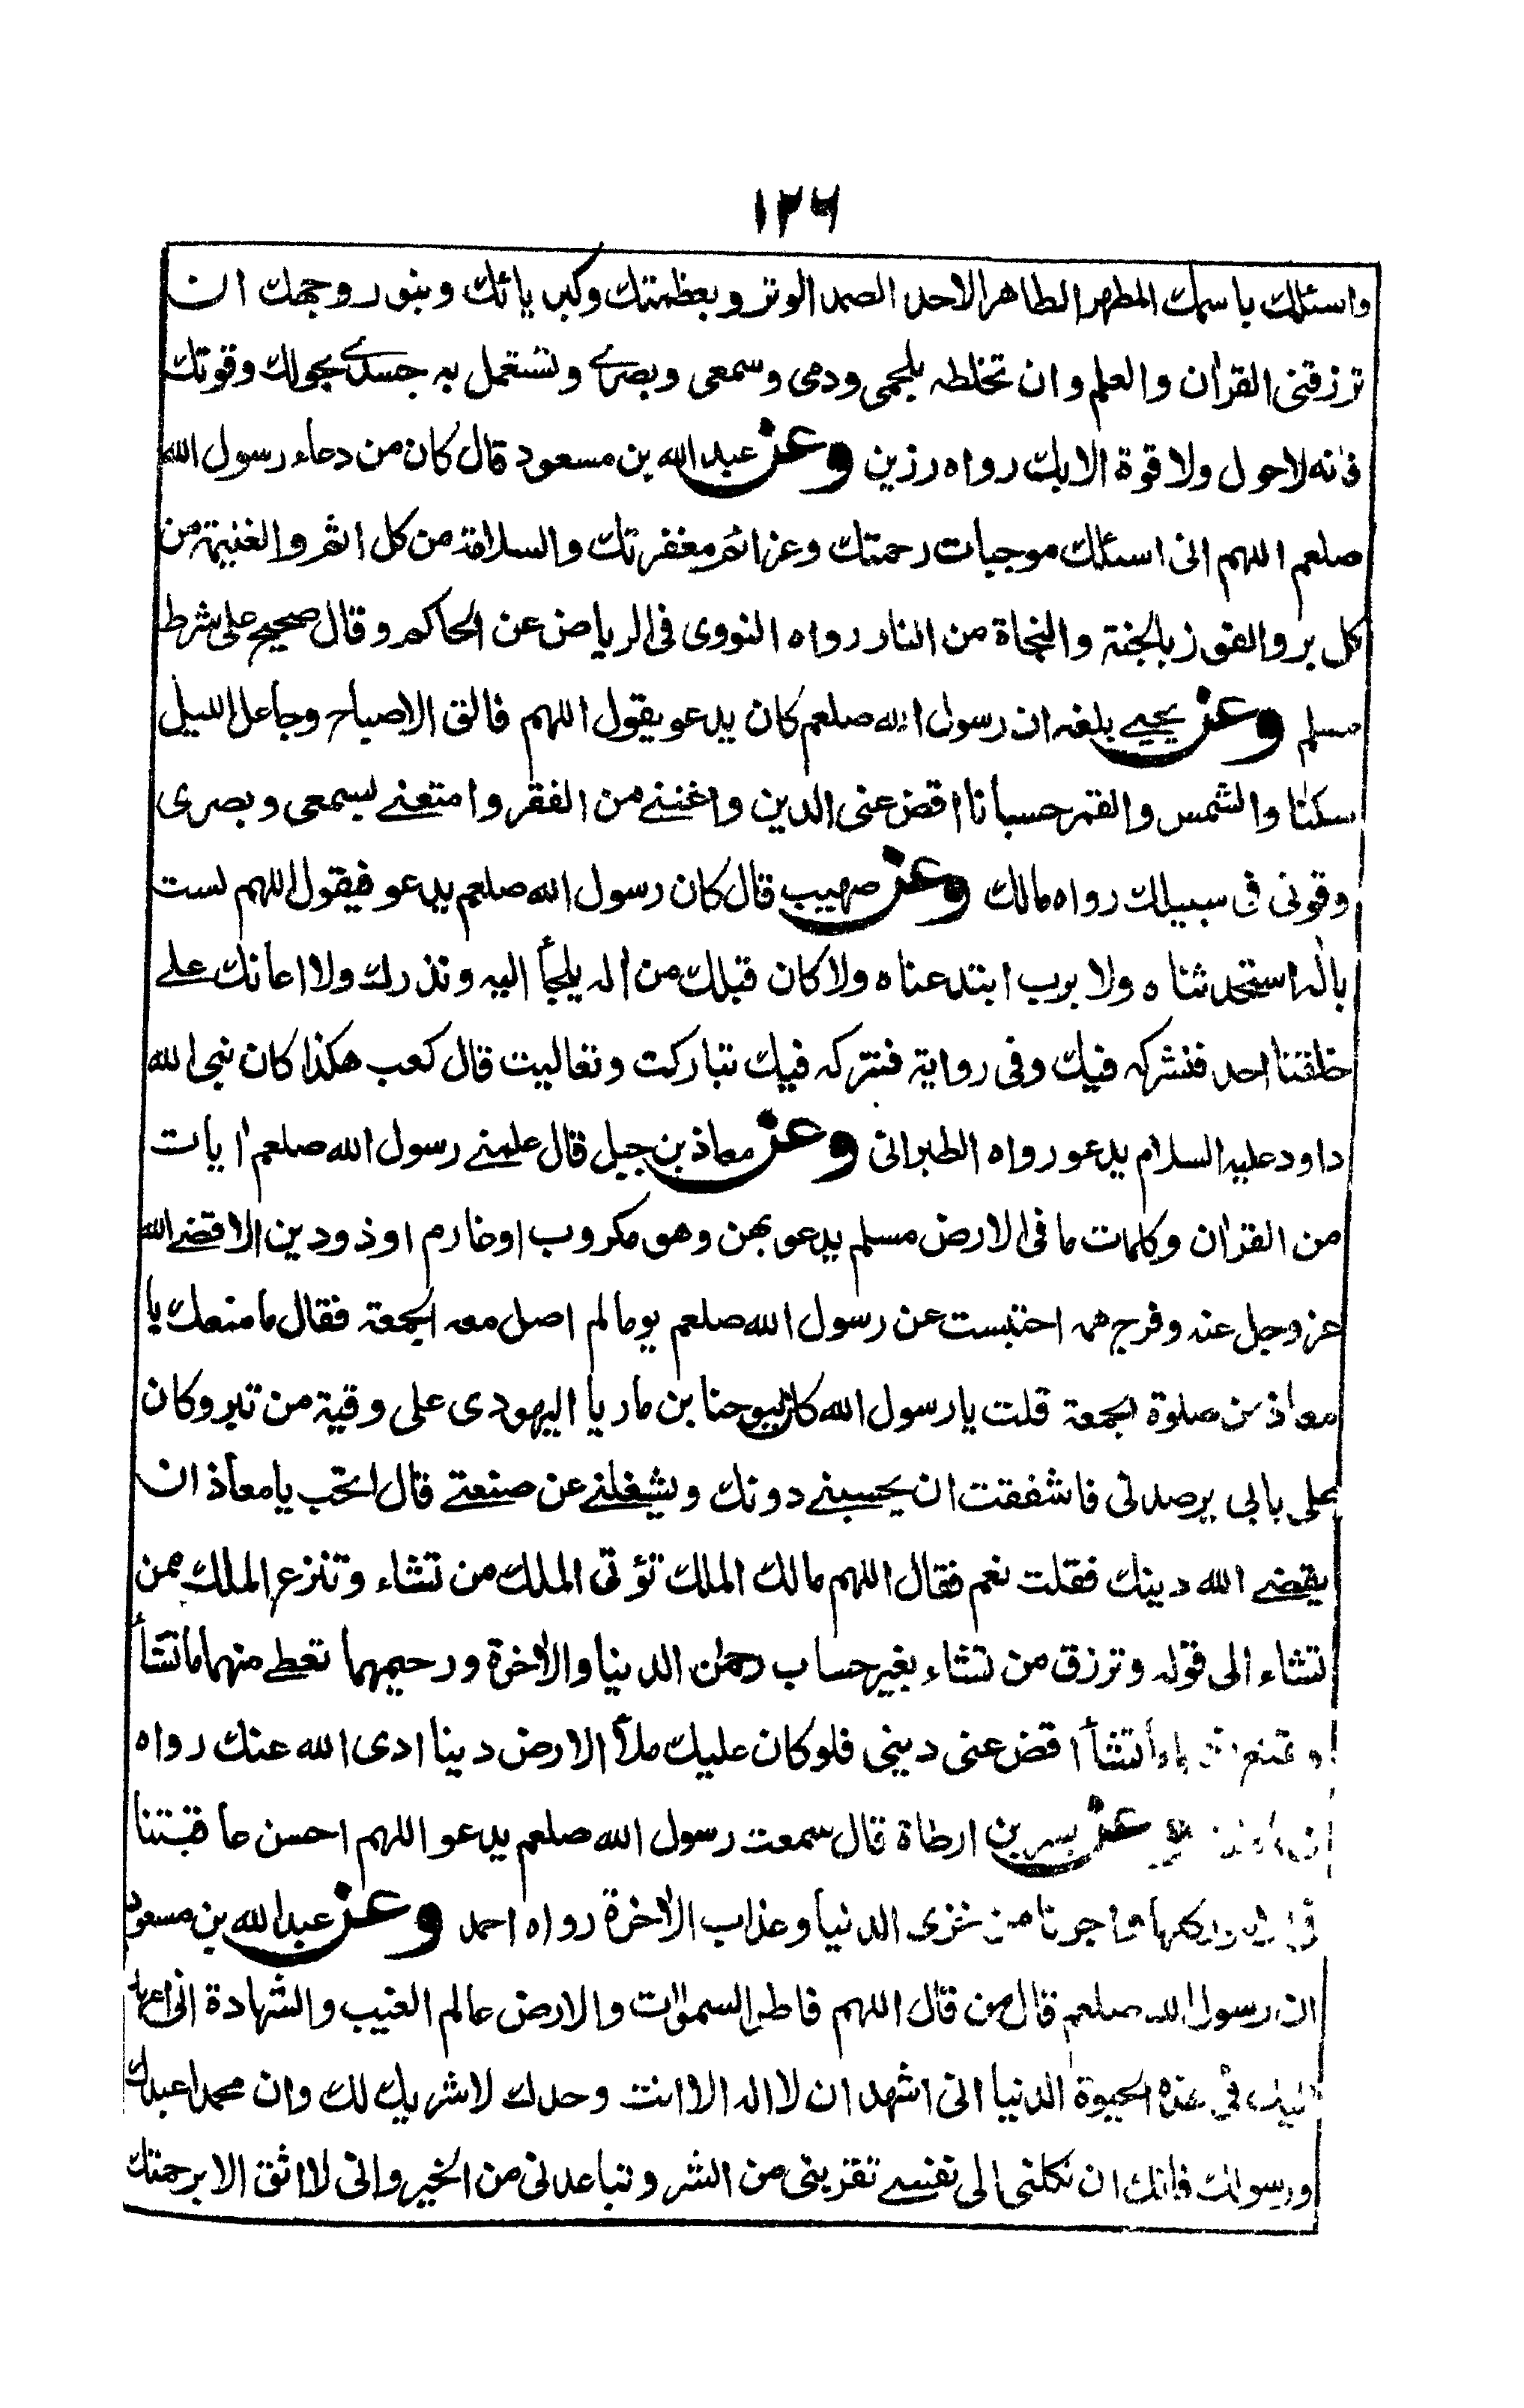 ١٢٦
واسئلك باسمك المطهر الطاهر الاحد الصمد الوتر وبعظمتك وكبريائك وبنور وجهك ان
ترزقنى القران والعلم وان تخلطه بلحمى ودمى وسمعى وبصرے وتستعمل به جسدے بحولك وقوتك
فانه لاحول ولا قوة الابك رواه رزين وعن عبد الله بن مسعود قال كان من دعاء رسول الله
صلعم اللهم انى اسئلك موجبات رحمتك وعزائم مغفرتك والسلامة من كل اثم والغنيمة من
كل بر والفوز بالجنة والنجاة من النار رواه النووى فى الرياض عن الحاكم وقال صحيح على شرط
مسلم وعن يحيے بلغه ان رسول الله صلعم كان يدعو يقول اللهم فالق الاصباح وجاعل الليل
سكنا والشمس والقمر حسبانا اقض عنى الدين واغننے من الفقر وامتعنے بسمعى وبصرى
وقونى فى سبيلك رواه مالك وعن صهيب قال كان رسول الله صلعم يدعو فيقول اللهم لست
باله استحدثناه ولا برب ابتدعناه ولا كان قبلك من اله يلجأ اليه ونذرك ولا اعانك علے
خلقنا احد فنشركه فيك وفى رواية فنتركه فيك تباركت وتعاليت قال كعب هكذا كان نبى الله
داود عليه السلام يدعو رواه الطبرانى وعن معاذ بن جبل قال علمنے رسول الله صلعم ايات
من القران وكلمات ما فى الارض مسلم يدعو بهن وهو مكروب اوغارم اوذودين الا قضے الله
عزوجل عنه وفرج همه احتبست عن رسول الله صلعم يوما لم اصل معه الجمعة فقال ما منعك يا
معاذ من صلوة الجمعة قلت يا رسول الله كان ليوحنا بن ماريا اليهودى على وقية من تبر وكان
على بابى يرصدنى فاشفقت ان يحبسنے دونك ويشغلنے عن صنعتے قال اتحب يا معاذ ان
يقضے الله دينك فقلت نعم فقال اللهم مالك الملك تؤتى الملك من تشاء وتنزع الملك ممن
تشاء الى قوله وترزق من تشاء بغير حساب رحمن الدنيا والاخرة ورحيمهما تعطے منهما ما تشأ
وتمنع تشأ اقض عنى دينى فلو كان عليك ملأ الارض دينا ادى الله عنك رواه
وعن بسر بن ارطاة قال سمعت رسول الله صلعم يدعو اللهم احسن عاقبتنا
كلها واجرنا من خزى الدنيا وعذاب الاخرة رواه احمد وعن عبد الله بن مسعود
ان رسول الله صلعم قال من قال اللهم فاطر السموات والارض عالم الغيب والشهادة انى اعهد
اليك فى هذه الحيوة الدنيا انى اشهد ان لا اله الا انت وحدك لا شريك لك وان محمدا عبدك
ورسولك فانك ان تكلنى الى نفسے تقربنى من الشر وتباعدنى من الخير وانى لا اثق الا برحمتك